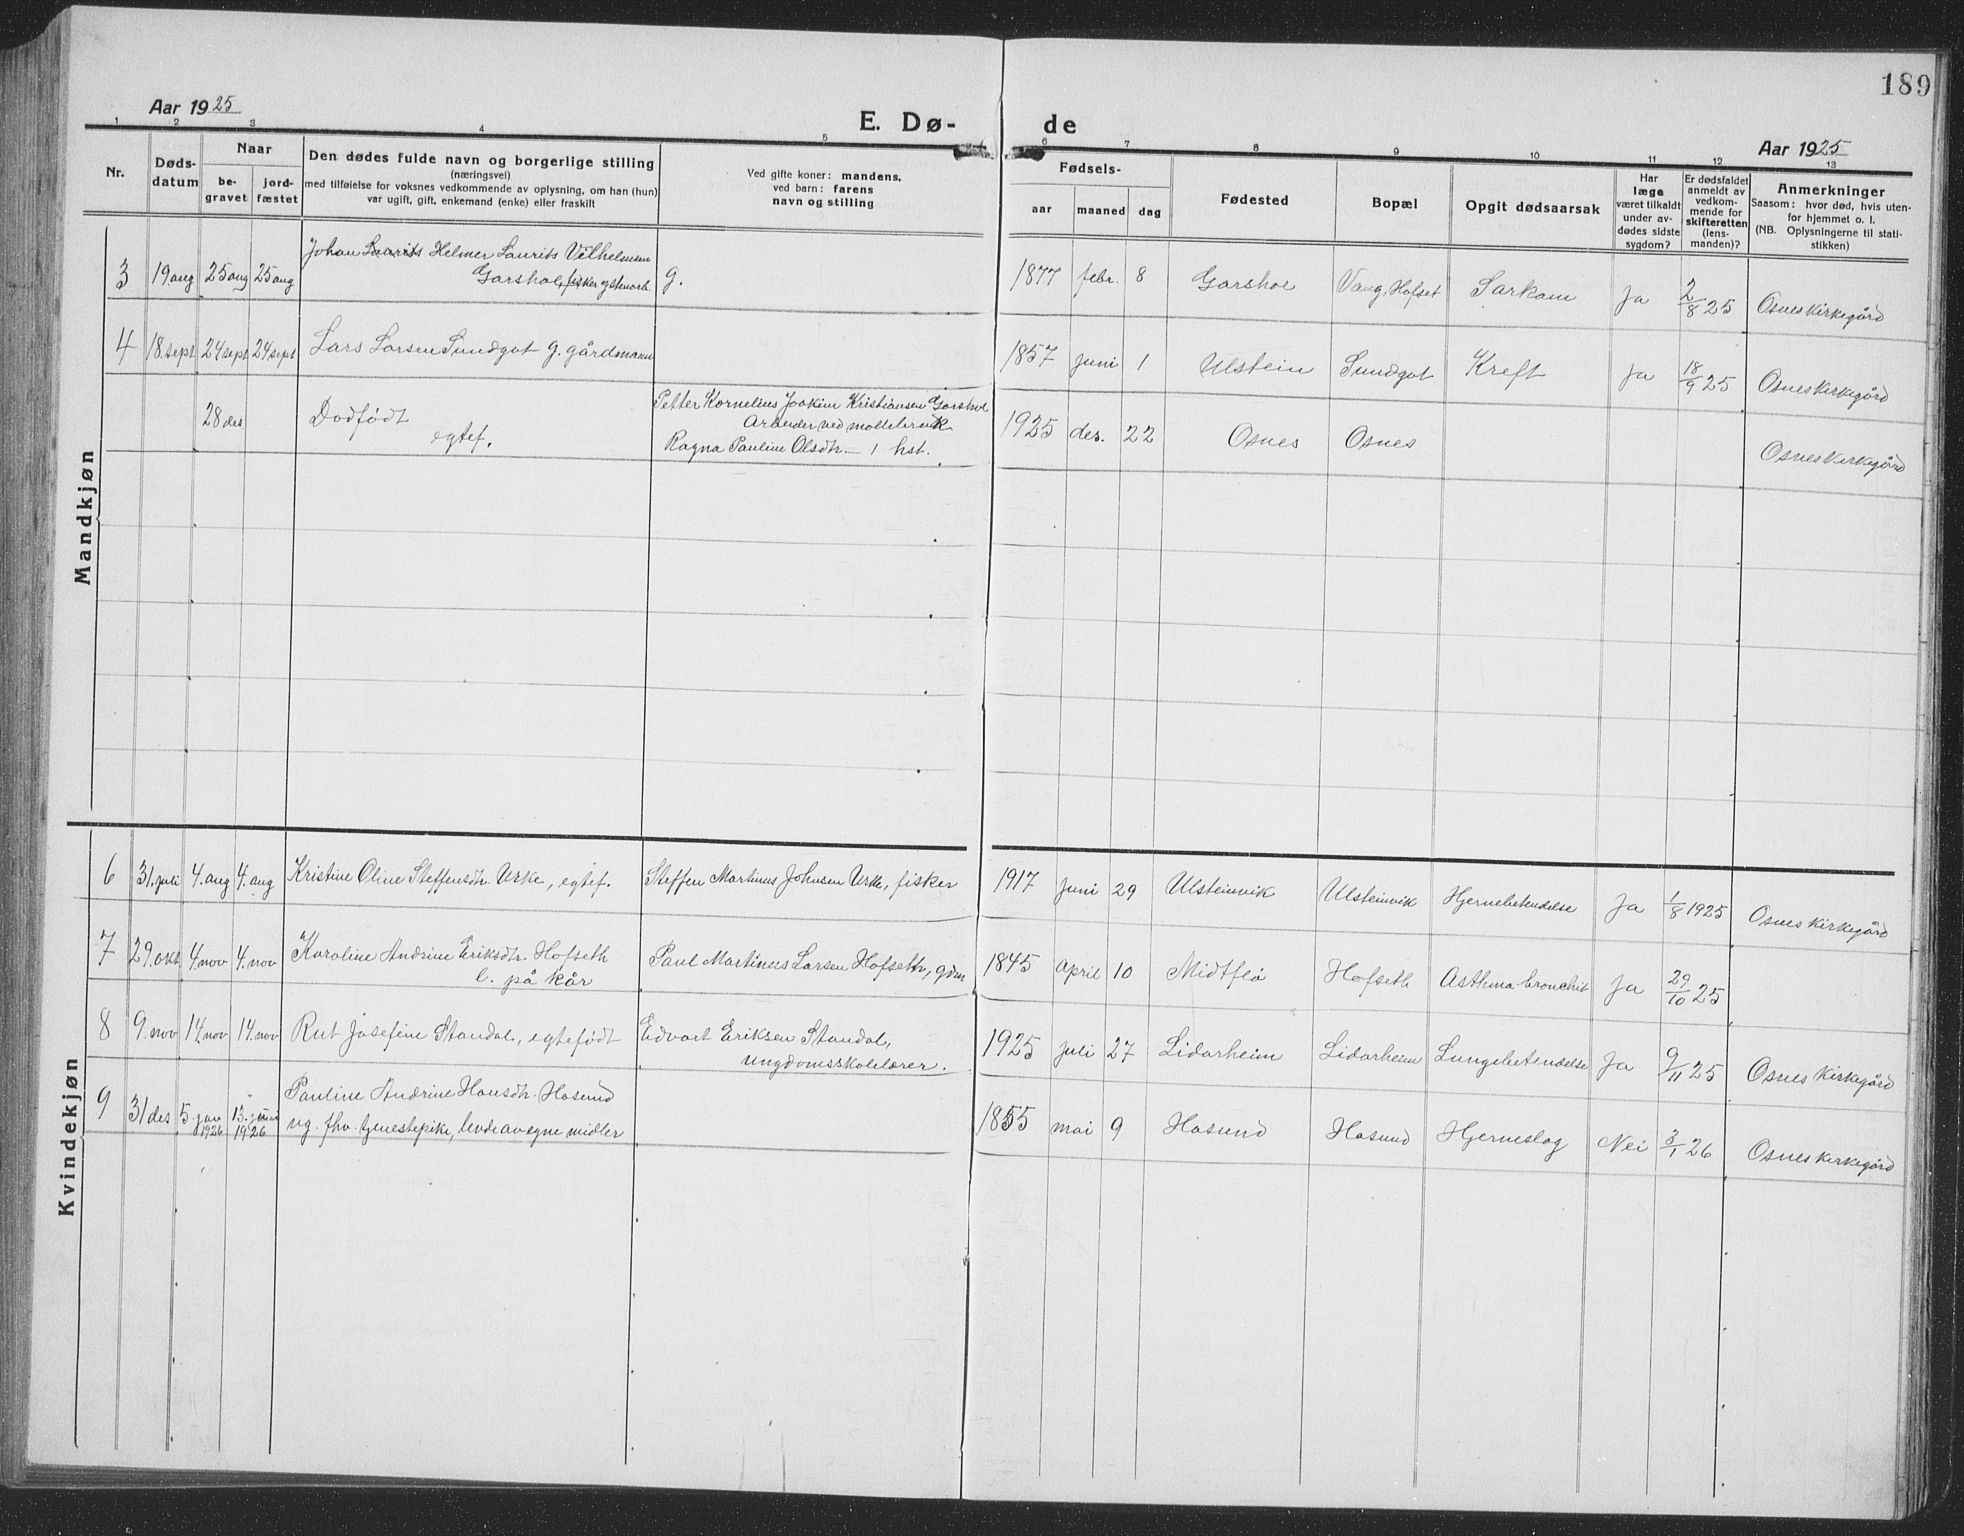 189
Aar 1925
E. Dø-
de
Aar 1925
1 2 3 4 5 6 7 8 9 10 11 12 13
Nr.
Døds-
datum
Naar
be-
gravet
jord-
fæstet
Den dødes fulde navn og borgerlige stilling
(næringsvei)
med tilføielse for voksnes vedkommende av oplysning, om han (hun)
var ugift, gift, enkemand (enke) eller fraskilt
Ved gifte koner: mandens,
ved barn: farens
navn og stilling
Fødsels-
aar maaned dag
Fødested
Bopæl
Opgit dødsaarsak
Har
læge
været tilkaldt
under av-
dødes sidste
sygdom?
Er dødsfaldet
anmeldt av
vedkom-
mende for
skifteretten
(lens-
manden)?
Anmerkninger
Saasom: hvor død, hvis uten-
for hjemmet o. l.
(NB. Oplysningerne til stati-
stikken)
Mandkjøn
Johan Laurits Helmer Laurits Vilhelmsen
3 19 aug 25 aug 25 aug Garshol, fisker og stenarb. g. 1877 febr. 8 Garshol Vaug, Hofset Sarkom Ja 2/8 25 Osnes kirkegård
4 18. sept 24 sept 24 sept Lars Larsen Sundgot g. gårdmann 1857 juni 1 Ulstein Sundgot Kreft Ja 18/9 25 Osnes kirkegård
Petter Kornelius Joakim Kristiansen Garshol
28 des Dødfødt Arbeider ved 1925 des. 22 Osnes Osnes Osnes kirkegård
egtef. Ragna Pauline Olsdtr. – 1 hst.
Kvindekjøn
6 31. juli 4. aug 4. aug Kristine Oline Steffensdtr. Urke, egtef. Steffen Martinus Johnsen Urke, fisker 1917 juni 29 Ulsteinvik Ulsteinvik Hjernebetendelse Ja 1/8 1925 Osnes kirkegård
7 29. okt 4. nov 4. nov Karoline Andrine Eriksdtr. Hofseth Paul Martinus Larsen Hofseth, gdm 1845 april 10 Midtflø Hofseth Asthma-bronchit Ja 29/10 25
e. på kår
8 9. nov 14. nov 14. nov Rut Josefine Standal, egtefødt Edvart Eriksen Standal, 1925 juli 27 Lidarheim Lidarheim Lungebetendelse Ja 9/11 25 Osnes kirkegård
ungdomsskolelærer.
Pauline Andrine Hansdtr. Hasund
9 31 des 5. jan 1926 13. juni 1926 ug. fhv. tjenestepike, levde av egne midler 1855 mai 9 Hasund Hasund Hjerneslag Nei 3/1 26 Osnes kirkegård